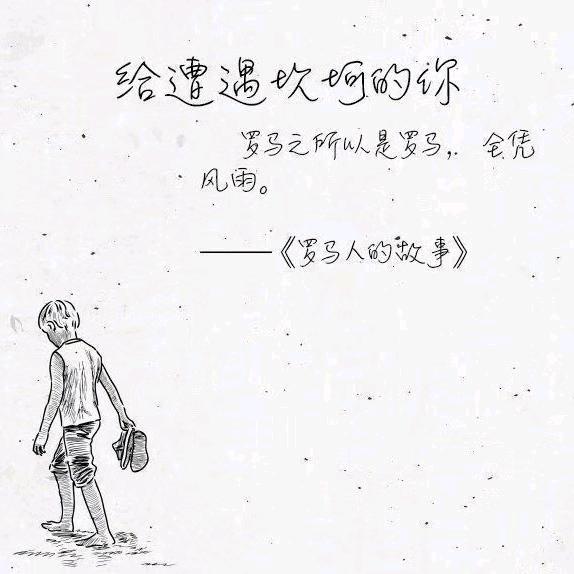 给遭遇坎坷的你
罗马之所以是罗马，全凭
风雨。
———《罗马人的故事》